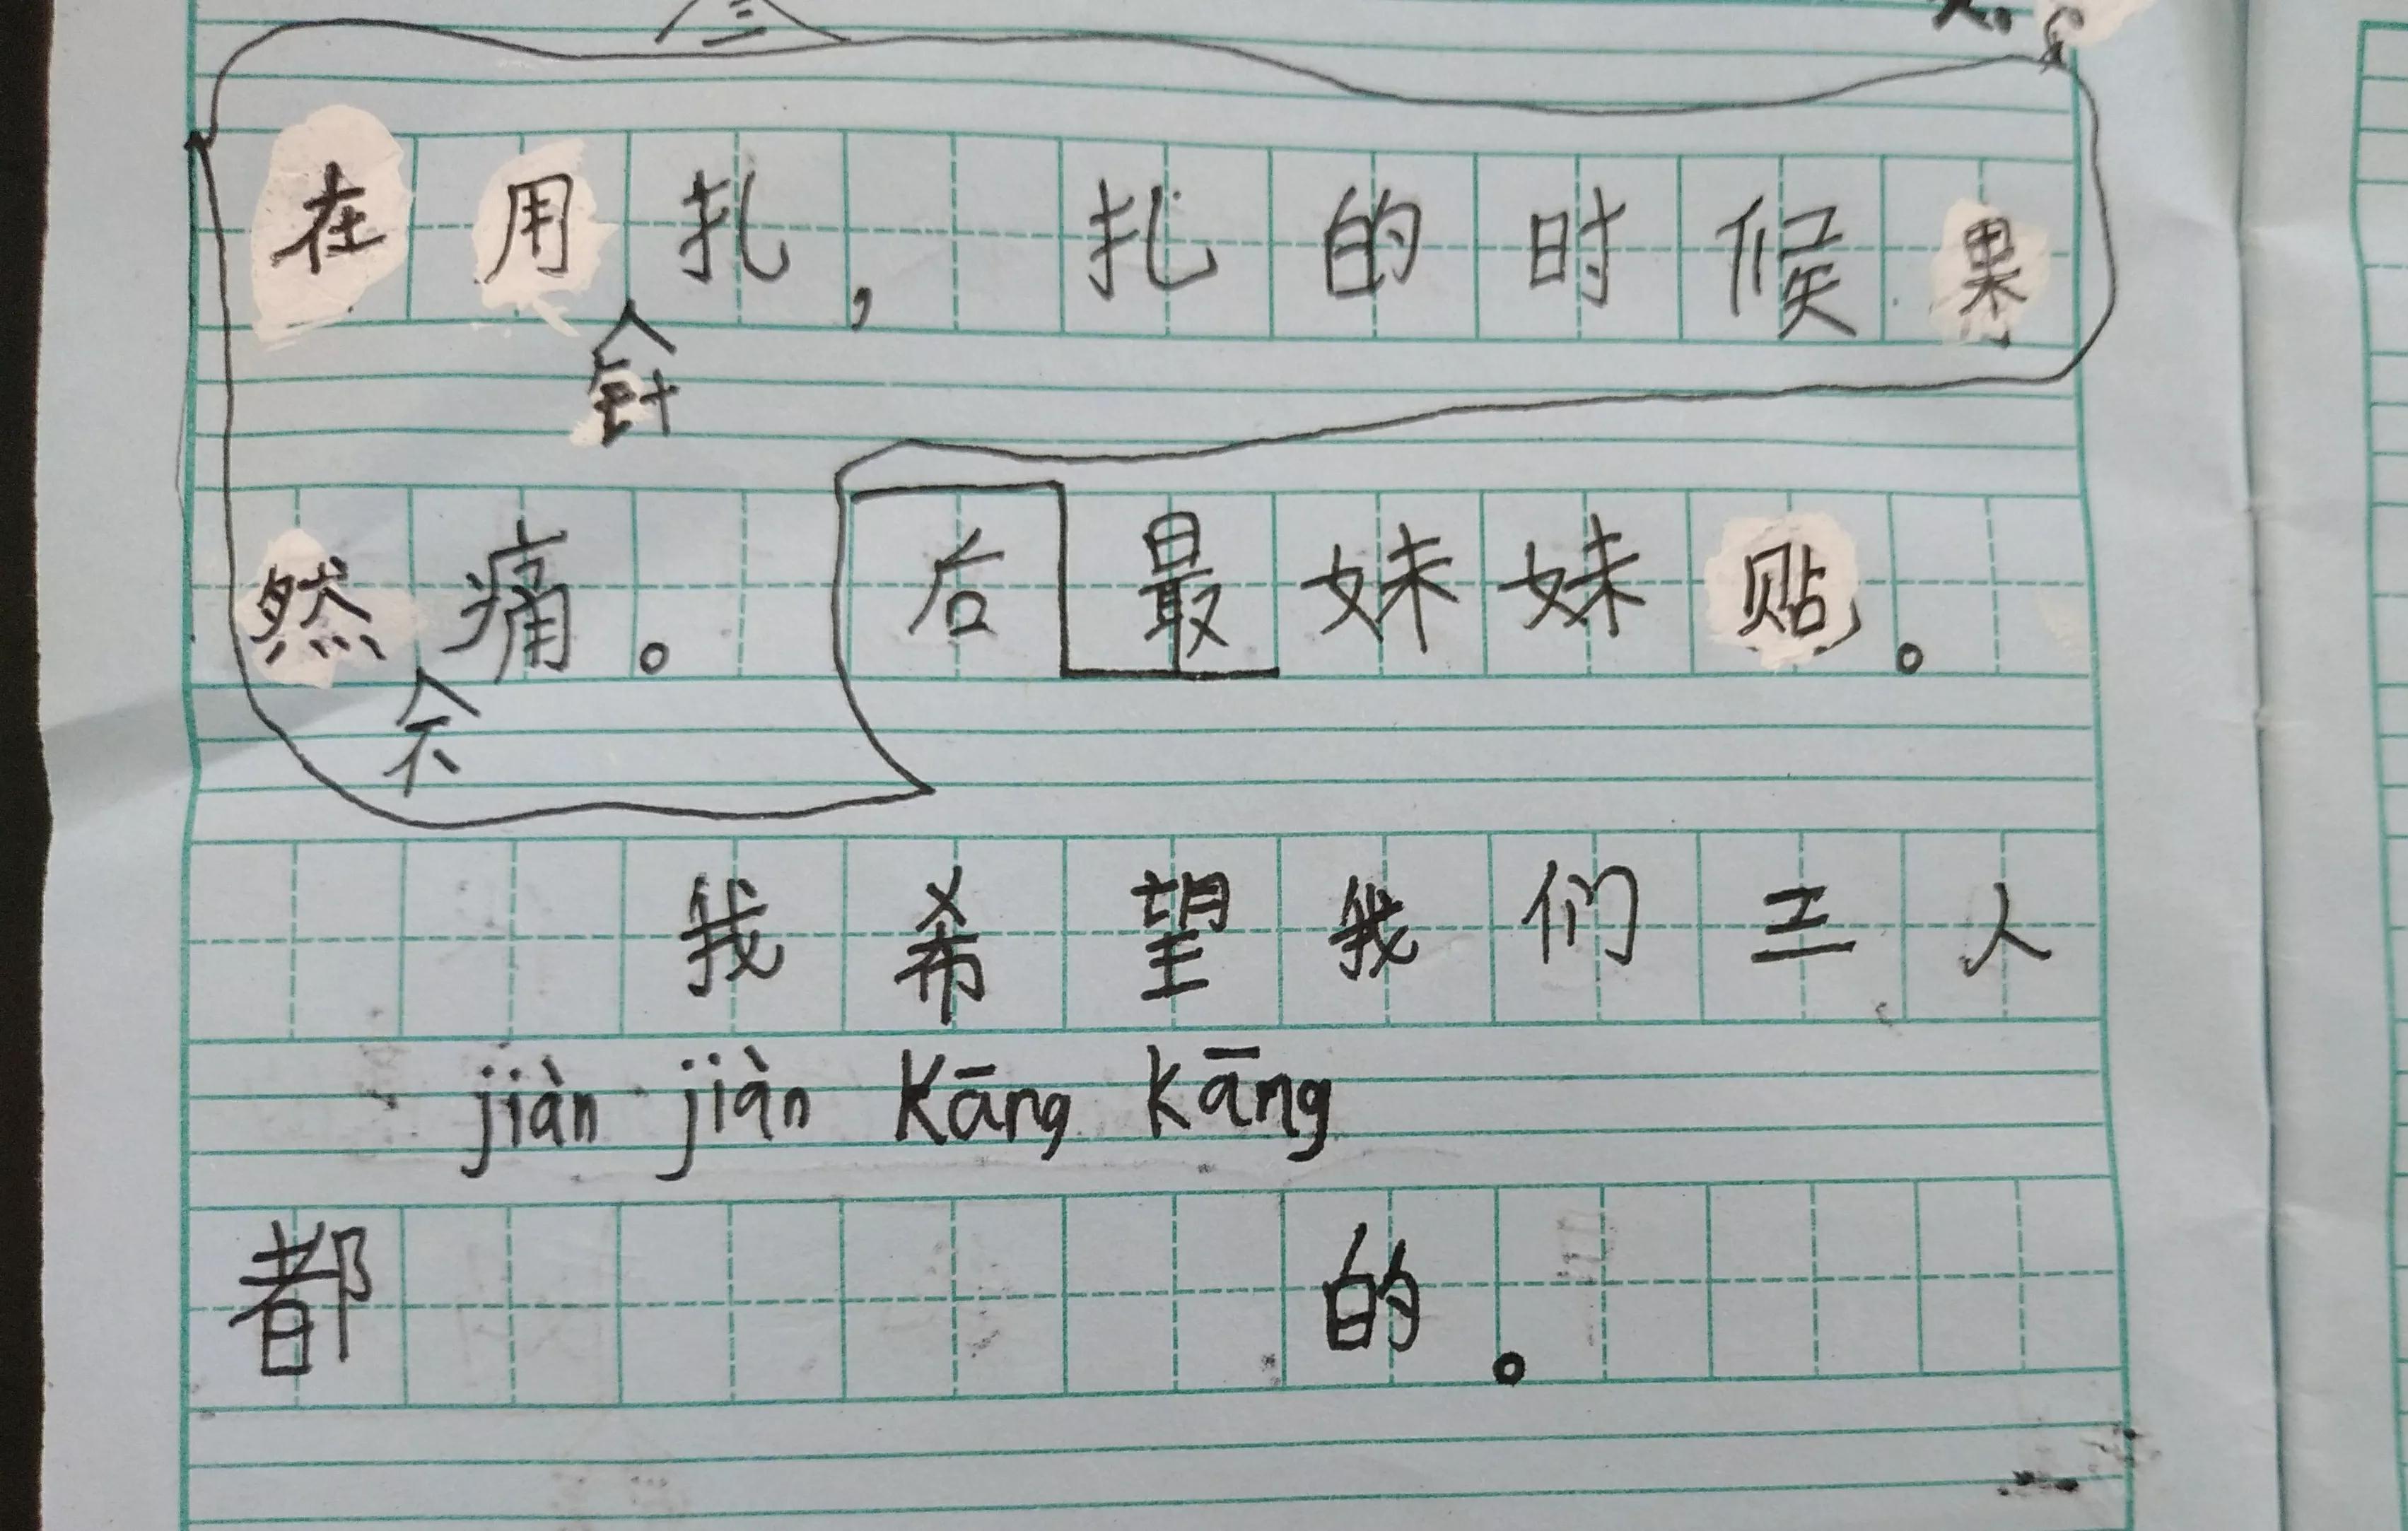 三
在用扎，扎的时候果
针
然痛。后最妹妹贴。
不
我希望我们三人
jiàn jiàn kāng kāng
都的。